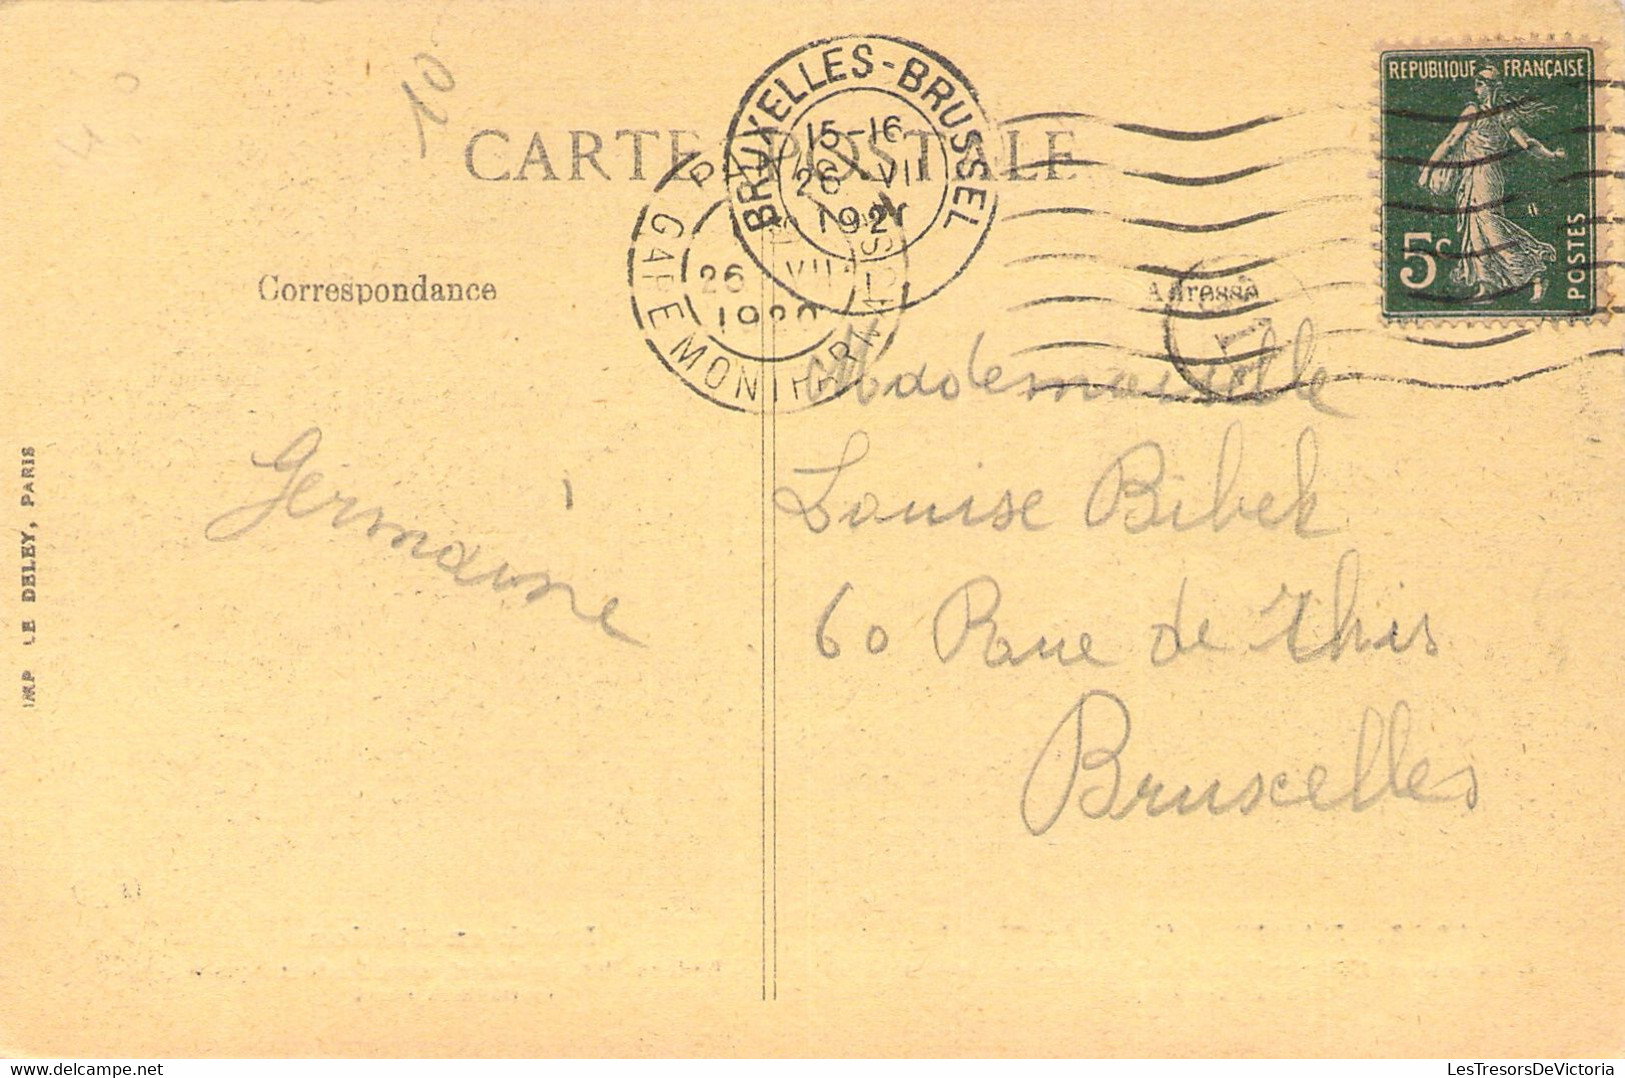 10
CARTE POSTALE
BRUXELLES-BRUSSEL
15-16
26 VII
192
GARE MONTPARNASSE
26 VII
REPUBLIQUE FRANÇAISE
5c
POSTES
T
Correspondance
Adresse
Mademoiselle
Louise Bibek
60 Rue de
Bruxelles
Germaine
IMP LE DELEY, PARIS
LesTresorsDeVictoria